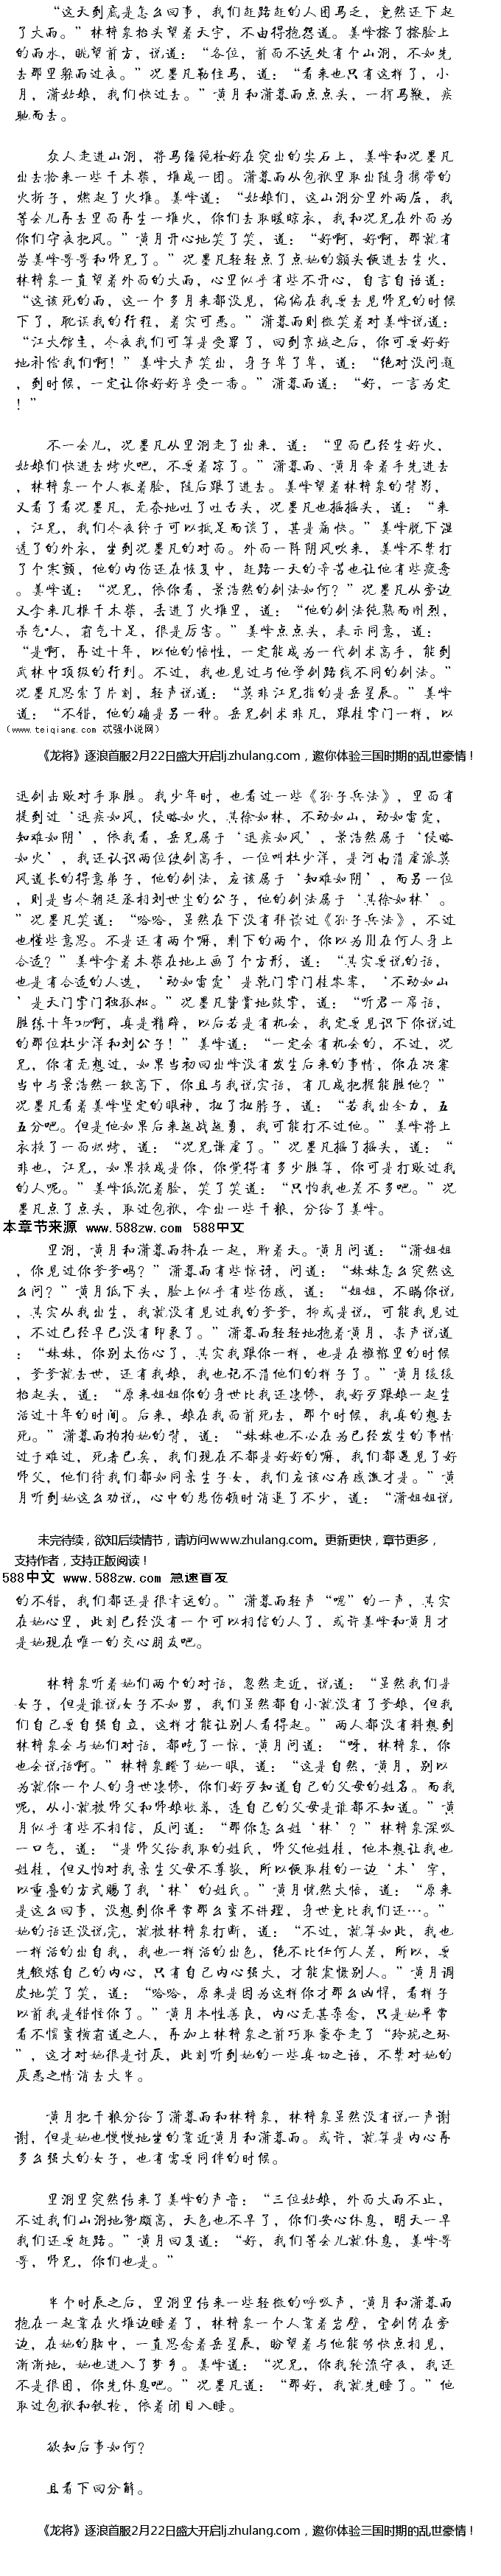 “这天到底是怎么回事，我们赶路赶的人困马乏，竟然还下起
了大雨。”林梓泉抬头望着天宇，不由得抱怨道。姜峰擦了擦脸上
的雨水，眺望前方，说道：“各位，前面不远处有个山洞，不如先
去那里躲雨过夜。”况墨凡勒住马，道：“看来也只有这样了，小
月，潇姑娘，我们快过去。”黄月和潇暮雨点点头，一挥马鞭，疾
驰而去。
众人走进山洞，将马缰绳栓好在突出的尖石上，姜峰和况墨凡
出去拾来一些干木柴，堆成一团。潇暮雨从包袱里取出随身携带的
火折子，燃起了火堆。姜峰道：“姑娘们，这山洞分里外两层，我
等会儿再去里面再生一堆火，你们去取暖晾衣，我和况兄在外面为
你们守夜把风。”黄月开心地笑了笑，道：“好啊，好啊，那就有
劳姜峰哥哥和师兄了。”况墨凡轻轻点了点她的额头便进去生火，
林梓泉一直望着外面的大雨，心里似乎有些不开心，自言自语道：
“这该死的雨，这一个多月来都没见，偏偏在我要去见师兄的时候
下了，耽误我的行程，着实可恶。”潇暮雨则微笑着对姜峰说道：
“江大馆主，今夜我们可算是受罪了，回到京城之后，你可要好好
地补偿我们啊！”姜峰大声笑出，身子耸了耸，道：“绝对没问题
，到时候，一定让你好好享受一番。”潇暮雨道：“好，一言为定
！”
不一会儿，况墨凡从里洞走了出来，道：“里面已经生好火，
姑娘们快进去烤火吧，不要着凉了。”潇暮雨、黄月牵着手先进去
，林梓泉一个人板着脸，随后跟了进去。姜峰望着林梓泉的背影，
又看了看况墨凡，无奈地吐了吐舌头，况墨凡也摇摇头，道：“来
，江兄，我们今夜终于可以抵足而谈了，甚是痛快。”姜峰脱下湿
透了的外衣，坐到况墨凡的对面。外面一阵阴风吹来，姜峰不禁打
了个寒颤，他的内伤还在恢复中，赶路一天的辛苦也让他有些疲惫
。姜峰道：“况兄，依你看，景浩然的剑法如何？”况墨凡从旁边
又拿来几根干木柴，丢进了火堆里，道：“他的剑法纯熟而刚烈，
杀气·人，霸气十足，很是厉害。”姜峰点点头，表示同意，道：
“是啊，再过十年，以他的悟性，一定能成为一代剑术高手，能到
武林中顶级的行列。不过，我也见过与他学剑路线不同的剑法。”
况墨凡思索了片刻，轻声说道：“莫非江兄指的是岳星辰。”姜峰
道：“不错，他的确是另一种。岳兄剑术非凡，跟桂掌门一样，以
（www.teiqiang.com 忒强小说网）
《龙将》逐浪首服2月22日盛大开启lj.zhulang.com，邀你体验三国时期的乱世豪情！
迅剑击败对手取胜。我少年时，也看过一些《孙子兵法》，里面有
提到过‘迅疾如风，侵略如火，其徐如林，不动如山，动如雷霆，
知难如阴’，依我看，岳兄属于‘迅疾如风’，景浩然属于‘侵略
如火’，我还认识两位使剑高手，一位叫杜少洋，是河南清崖派莫
风道长的得意弟子，他的剑法，应该属于‘知难如阴’，而另一位
，则是当今朝廷丞相刘世尘的公子，他的剑法属于‘其徐如林’。
”况墨凡笑道：“哈哈，虽然在下没有拜读过《孙子兵法》，不过
也懂些意思。不是还有两个嘛，剩下的两个，你以为用在何人身上
合适？”姜峰拿着木柴在地上画了个方形，道：“其实要说的话，
也是有合适的人选，‘动如雷霆’是乾门掌门桂零零，‘不动如山
’是天门掌门独孤松。”况墨凡赞赏地鼓掌，道：“听君一席话，
胜练十年功啊，真是精辟，以后若是有机会，我定要见识下你说过
的那位杜少洋和刘公子！”姜峰道：“一定会有机会的，不过，况
兄，你有无想过，如果当初回出峰没有发生后来的事情，你在决赛
当中与景浩然一较高下，你且与我说实话，有几成把握能胜他？”
况墨凡看着姜峰坚定的眼神，扭了扭脖子，道：“若我出全力，五
五分吧。但是他如果后来越战越勇，我可能打不过他。”姜峰将上
衣换了一面烘烤，道：“况兄谦虚了。”况墨凡摇了摇头，道：“
非也，江兄，如果换成是你，你觉得有多少胜算，你可是打败过我
的人呢。”姜峰低沉着脸，笑了笑道：“只怕我也差不多吧。”况
墨凡点了点头，取过包袱，拿出一些干粮，分给了姜峰。
本章节来源 www.588zw.com 588中文
里洞，黄月和潇暮雨挤在一起，聊着天。黄月问道：“潇姐姐
，你见过你爹爹吗？”潇暮雨有些惊讶，问道：“妹妹怎么突然这
么问？”黄月低下头，脸上似乎有些伤感，道：“姐姐，不瞒你说
，其实从我出生，我就没有见过我的爹爹，抑或是说，可能我见过
，不过已经早已没有印象了。”潇暮雨轻轻地抱着黄月，柔声说道
：“妹妹，你别太伤心了，其实我跟你一样，也是在襁褓里的时候
，爹爹就去世，还有我娘，我也记不清他们的样子了。”黄月缓缓
抬起头，道：“原来姐姐你的身世比我还凄惨，我好歹跟娘一起生
活过十年的时间。后来，娘在我面前死去，那个时候，我真的想去
死。”潇暮雨拍拍她的背，道：“妹妹也不必在为已经发生的事情
过于难过，死者已矣，我们现在不都是好好的嘛，我们都遇见了好
师父，他们待我们都如同亲生子女，我们应该心存感激才是。”黄
月听到她这么劝说，心中的悲伤顿时消退了不少，道：“潇姐姐说
未完待续，欲知后续情节，请访问www.zhulang.com。更新更快，章节更多，
支持作者，支持正版阅读！
588中文 www.588zw.com 急速首发
的不错，我们都还是很幸运的。”潇暮雨轻声“嗯”的一声，其实
在她心里，此刻已经没有一个可以相信的人了，或许姜峰和黄月才
是她现在唯一的交心朋友吧。
林梓泉听着她们两个的对话，忽然走近，说道：“虽然我们是
女子，但是谁说女子不如男，我们虽然都自小就没有了爹娘，但我
们自己要自强自立，这样才能让别人看得起。”两人都没有料想到
林梓泉会与她们对话，都吃了一惊，黄月问道：“呀，林梓泉，你
也会说话啊。”林梓泉瞪了她一眼，道：“这是自然，黄月，别以
为就你一个人的身世凄惨，你们好歹知道自己的父母的姓名。而我
呢，从小就被师父和师娘收养，连自己的父母是谁都不知道。”黄
月似乎有些不相信，反问道：“那你怎么姓‘林’？”林梓泉深吸
一口气，道：“是师父给我取的姓氏，师父他姓桂，他本想让我也
姓桂，但又怕对我亲生父母不尊敬，所以便取桂的一边‘木’字，
以重叠的方式赐了我‘林’的姓氏。”黄月恍然大悟，道：“原来
是这么回事，没想到你平常那么蛮不讲理，身世竟比我们还…。”
她的话还没说完，就被林梓泉打断，道：“不过，就算如此，我也
一样活的出自我，我也一样活的出色，绝不比任何人差，所以，要
先锻炼自己的内心，只有自己内心强大，才能震慑别人。”黄月调
皮地笑了笑，道：“哈哈，原来是因为这样你才那么凶悍，看样子
以前我是错怪你了。”黄月本性善良，内心无甚杂念，只是她平常
看不惯蛮横霸道之人，再加上林梓泉之前巧取豪夺走了“玲珑之环
”，这才对她很是讨厌，此刻听到她的一些真切之语，不禁对她的
厌恶之情消去大半。
黄月把干粮分给了潇暮雨和林梓泉，林梓泉虽然没有说一声谢
谢，但是她也慢慢地坐的靠近黄月和潇暮雨。或许，就算是内心再
多么强大的女子，也有需要同伴的时候。
里洞里突然传来了姜峰的声音：“三位姑娘，外面大雨不止，
不过我们山洞地势颇高，天色也不早了，你们安心休息，明天一早
我们还要赶路。”黄月回复道：“好，我们等会儿就休息，姜峰哥
哥，师兄，你们也是。”
半个时辰之后，里洞里传来一些轻微的呼吸声，黄月和潇暮雨
抱在一起靠在火堆边睡着了，林梓泉一个人靠着岩壁，宝剑倚在旁
边，在她的脑中，一直思念着岳星辰，盼望着与他能够快点相见，
渐渐地，她也进入了梦乡。姜峰道：“况兄，你我轮流守夜，我还
不是很困，你先休息吧。”况墨凡道：“那好，我就先睡了。”他
取过包袱和铁枪，依着闭目入睡。
欲知后事如何？
且看下回分解。
《龙将》逐浪首服2月22日盛大开启lj.zhulang.com，邀你体验三国时期的乱世豪情！